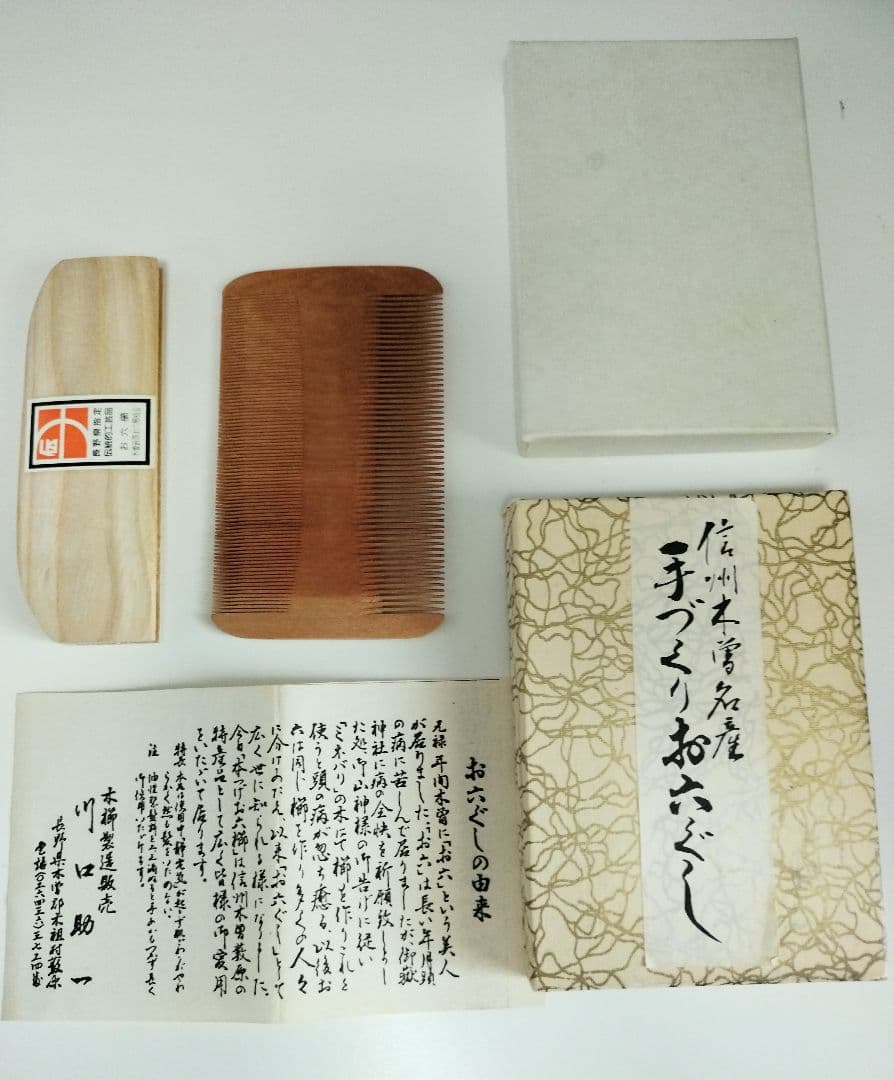 伝
長野県指定
伝統的工芸品
お六櫛
信州木曽名産
手づくりお六ぐし
お六ぐしの由来
元禄年間木曽に「お六」という美人
が居りました。「お六」は長い年月頭
の病に苦しんで居りましたが、御嶽
神社に病の全快を祈願致しまし
た処、御山神様の御告げに従い
「ミネバリ」の木にて櫛を作りこれを
使うと頭の病が忽ち癒る、以後お
六は同じ櫛を作り多くの人々
に分けあたえ、以来「お六ぐし」とし
広く世に知られる様になりました。
今日、本つげお六櫛は信州木曽薮原の
特産品として広く皆様の御愛用
をいただいて居ります。
特長 本品は使用中、静電気が起らず
髪をいためない。
注 油性整髪料を
御使用いただけます。
木櫛製造販売
川口助一
長野県木曽郡木祖村薮原
電話